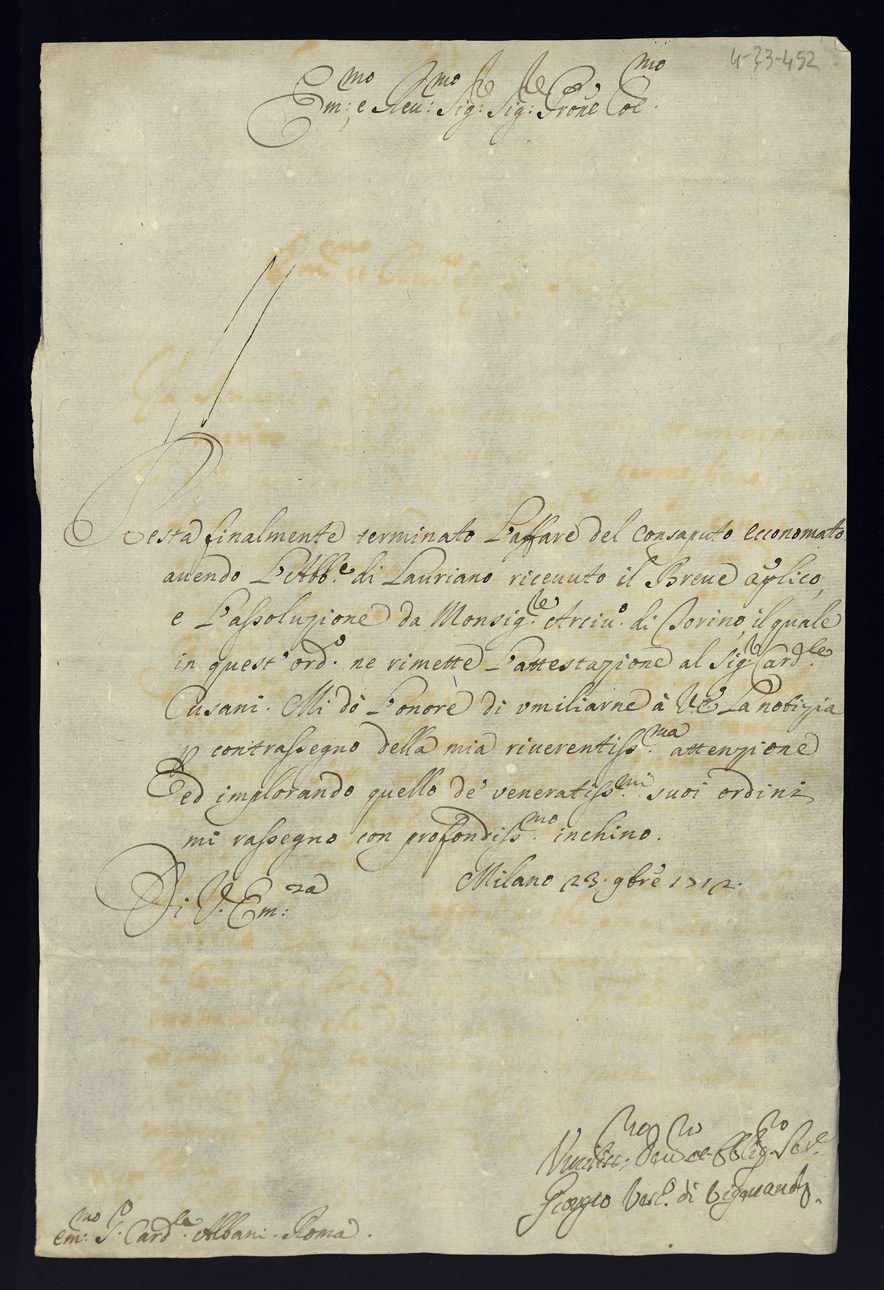 4-33-452
Em:mo e Reu:mo Sig:re Sig:re Prõne Col:mo
Resta finalmente terminato L'affare del consaputo economato
auendo L'Abb.e di Lauriano riceuuto il Breue ap̃lico,
e L'assoluzione da Monsig.re Arciu.o di Torino, il quale
in quest'ord.o ne rimette L'attestazione al Sig.r Card.le
Cusani. Mi dò L'onore di vmiliarne à VE La notizia
p contrassegno della mia riuerentiss.ma attenzione
ed implorando quello de' veneratiss.mi suoi ordini
mi rassegno con profondiss.mo inchino.
Di V. Em:za Milano 23. 9bre 1712.
Vmiliss:mo Deu.mo et Obblig.mo Ser.e
Giorgio
em:mo S.r Card.le Albani. Roma.